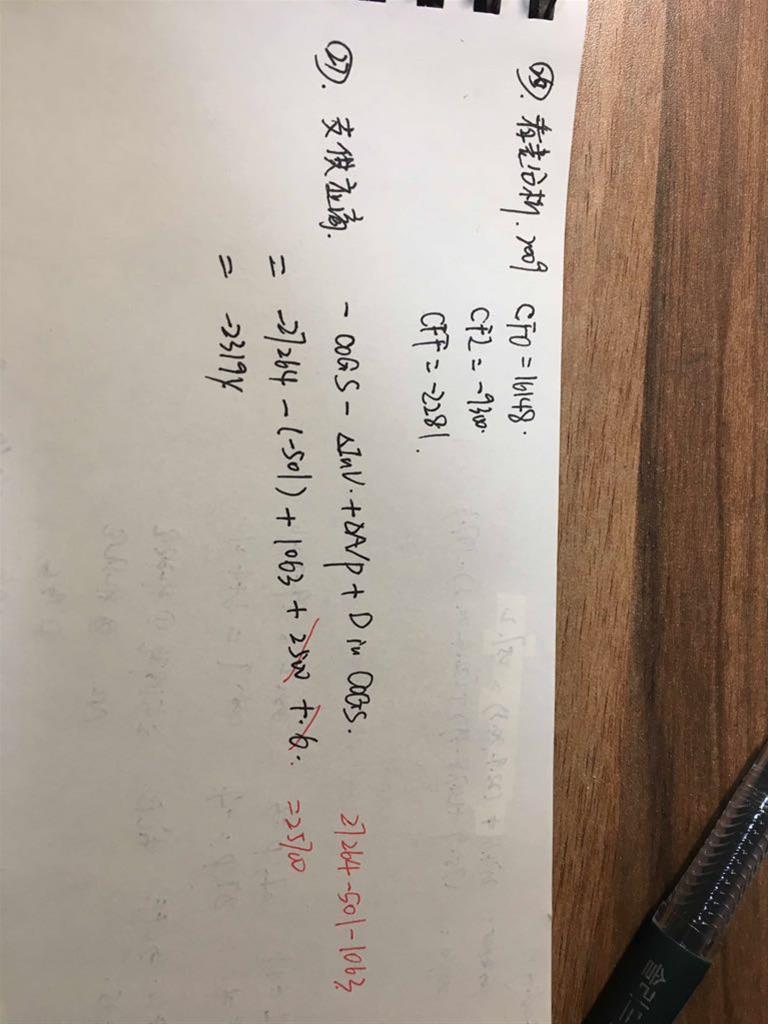 ㉖. 看表分析. 2009 CFO = 16148.
CFI = -9300.
CFF = -2281.
㉗. 支供应商. - COGS - ΔInv. + ΔA/p + D in COGS.
= -27264 - (-501) + 1063 + 2500 + 6.
27264-501-1063
=25700